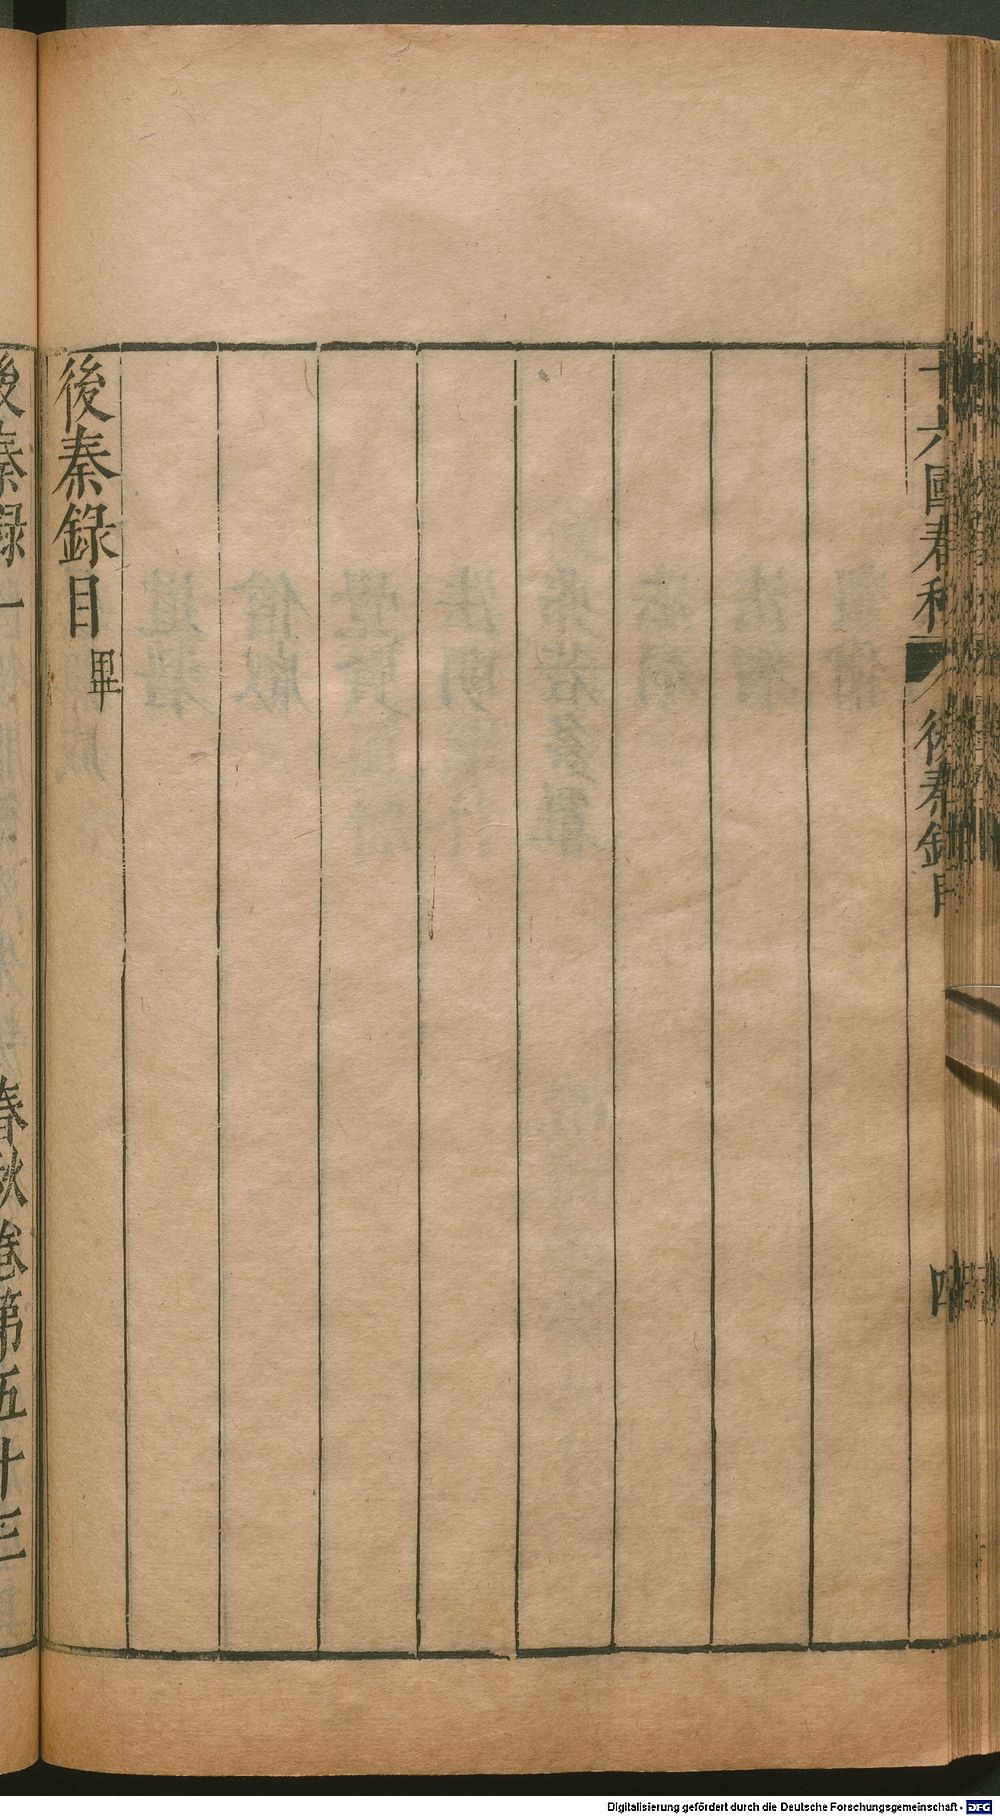 十六國春秋 後秦錄目 四
後秦錄目畢
後秦録一 春秋卷第五十三
Digitalisierung gefördert durch die Deutsche Forschungsgemeinschaft - DFG